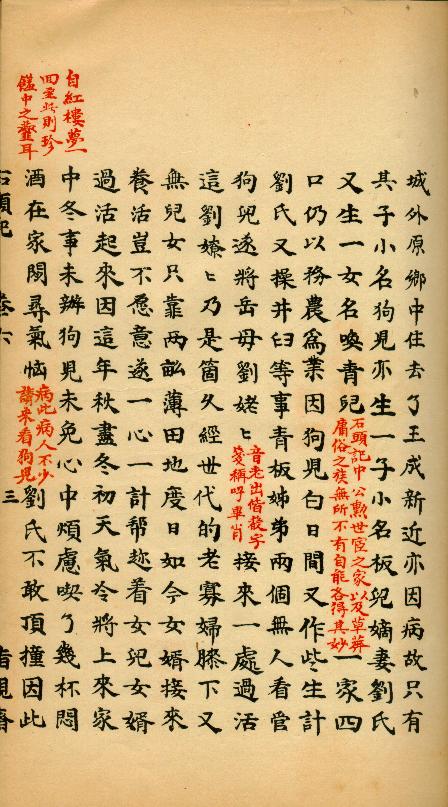 城外原鄉中住去了王成新近亦因病故只有
其子小名狗兒亦生一子小名板兒嫡妻劉氏
又生一女名喚青兒
石頭記中公勲世宦之家以及草莽
庸俗之族無所不有自能各得其妙
一家四
口仍以務農爲業因狗兒白日間又作些生計
劉氏又操井臼等事青板姊弟兩個無人看管
狗兒遂將岳母劉姥〻
音老出偕聲字
箋稱呼畢肖
接來一處過活
這劉嫽〻乃是箇久經世代的老寡婦膝下又
無兒女只靠兩畝薄田地度日如今女婿接來
養活豈不愿意遂一心一計幇趂着女兒女婿
過活起來因這年秋盡冬初天氣冷將上來家
自紅樓夢一
回至此則珍
饈中之虀耳
中冬事未辦狗兒未免心中煩慮喫了幾杯悶
酒在家閑尋氣惱
病此病人不少
請來看狗兒
劉氏不敢頂撞因此
三